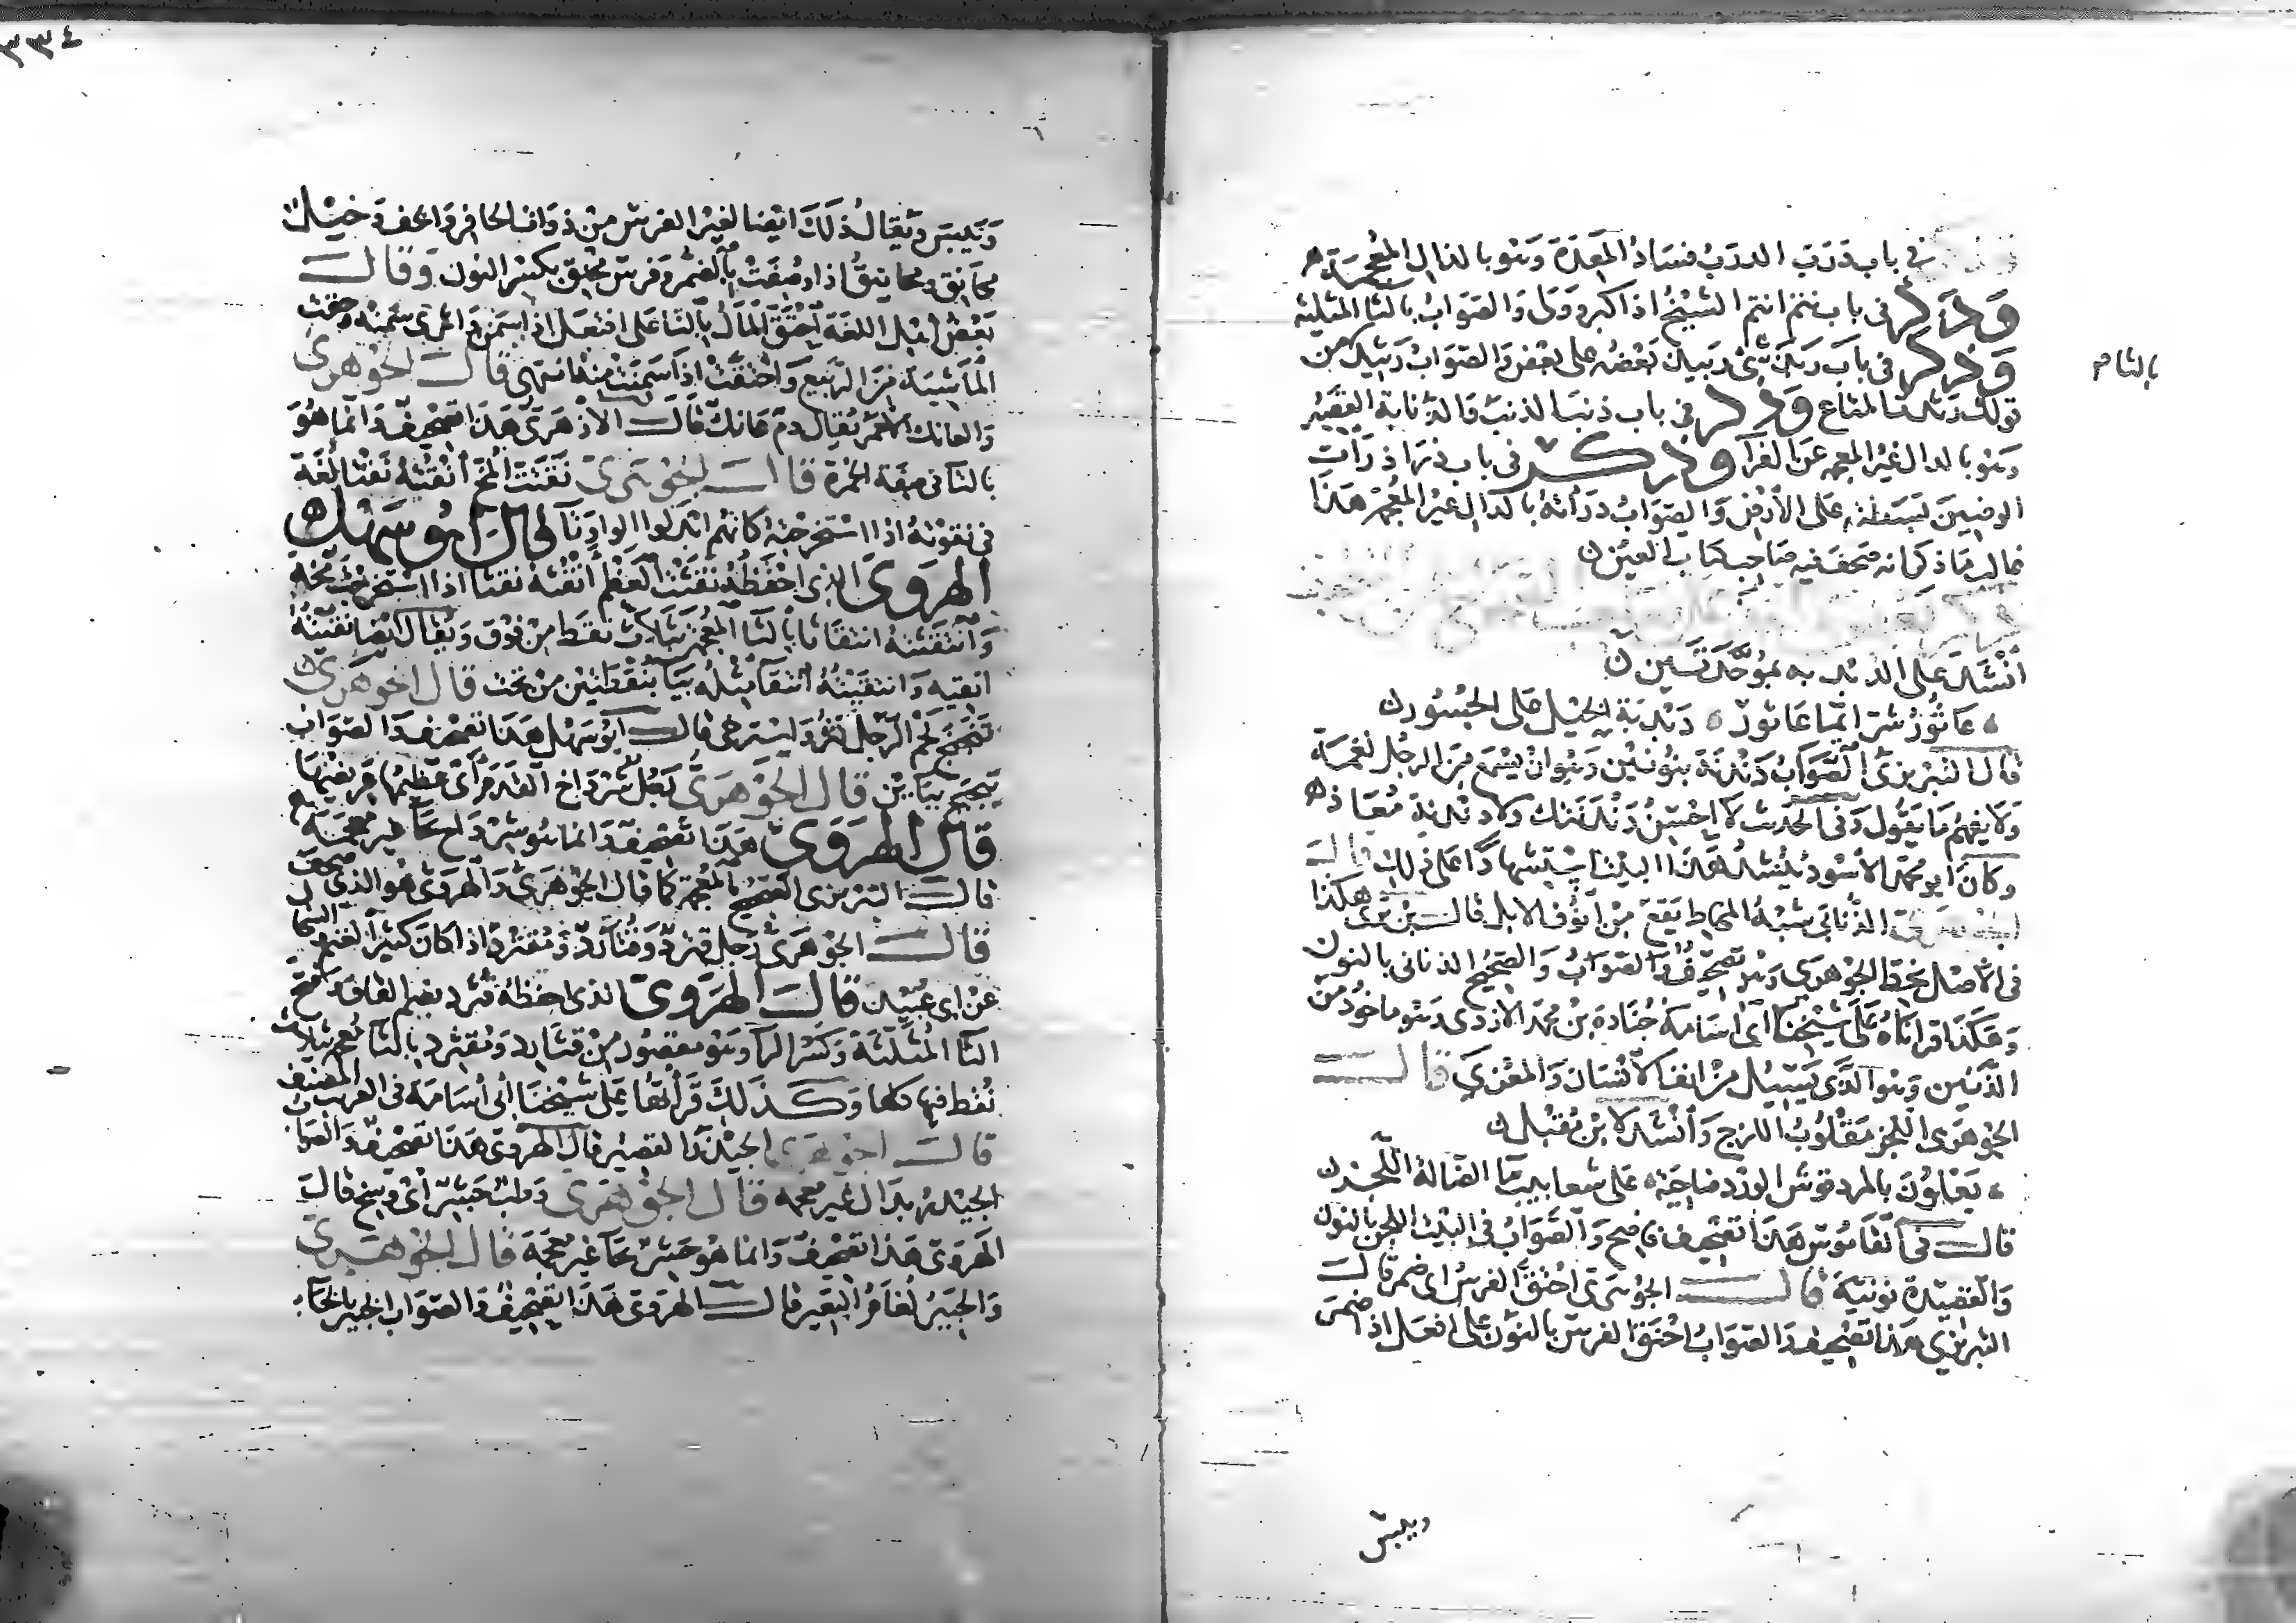 في باب دَرَبَ الدربُ فسَادُ المَعِدَة وَهو بالذال المُعجمَة
وَذكر في باب نتم انتم الشيخُ اذا كبر وولى وَالصَوابُ بالثا المثلثه
بالثا م
وَذكر في باب رَبَلَ شئ رَبيل بَعْضُه على بعْض وَالصوَابُ رَثيل من
قولك رَثدت المتاع وَذكر في باب ذنب الذنب وَالذنابة القَصِيْر
وَهو بالدال غير المعجمه عَن الفرآ وذكر في باب ذرَا ذرَأت
الوضين بَسَطته على الأرض وَالصوَابُ دَرَأته بالدال غير المُعْجَمَ هَذا
فما له مَاذكرانه صَحف فيه صَاحب كتاب العَيْن
انشَدَ على الدندبه بموُحَّدَتَين
عَاثوُرُ شَرّ ايّما عَاثور دَبْدَبةِ الخَيْل على الجُسُور
قال التبْريزي الصوَابُ دَنْدَنَة بنُونيْن وَهُوان يسْمَع مِنَ الرجُل نَغمَة
وَلا يفهمُ مَا يقُول وَفي الحديث لا احْسِنُ دَنْدَنَتك ولا دَنْدنة مُعَاذ
وكانَ ابو محمّد الأسْود يُنْشدُ هَذا البيْتَ يسْتشهدا على ذلك قال
الجوهَري الذُّنابَى شبْهُ المخاط يقَعُ مِن أنُوف الابل قال بن برّي هكذا
في الأصْل بخط الجوْهري وَهو تَصْحيفٌ وَالصوَابُ وَالصحيْحُ الذناني بالنون
وَهكذا قراناهُ على شيْخنا ابى اسَامة جُنَادة بن محمّد الازدي وَهو ماخوُذ من
الذنين وَهوا لذي يَسِيْل من انف الانْسَان وَالمعْزي قال
الجوْهَرى اللجز مَقْلوُبُ اللزج وَأنشَد لا بن مُقْبل
يَعْلوُن بالمردقوش الورْد ضاحيَة على سَعابيب مَا الضالة اللجز
قال في القاموُس هَذا تصْحيف فاضح وَالصَوَابُ في البَيْت اللجن بالنون
وَالقصيْدة نونيّة قال الجوْهرَى احْتَقّ الفرَسُ اى ضمر قال
التبريزي هَذا تَصْحيف وَالصوَابُ احْنَقَ الفرس بالنُون على افعل اذا ضمر
ويبس
٣٣٤
وَيَبِسَ وَيُقَالُ ذلكَ ايْضا لغيْر الفرسْ منْ ذوَات الحافر وَالخف وَخيْل
مَحانق ومحانيقُ اذا وصُفَتْ بالضمْر وَفرسَ مُحْنِق بكسْر النون وَقال
بَعْضُ أهْل اللغَة احْتَقّ المَالُ بالتّا على افتعَلَ اذا سَمن وَاثرى سِمَنُه وَحقت
المَاشيَة مَن الرّبيع وَاحْتَقّتْ اذا سَمِنَتْ منهُ انتهى قال الجَوْهري
وَالعانك الأحْمَر يُقال دم عَانك قال الأزهَرى هَذا تصْحيْف وَانما هُوَ
بالتا في صفة الحُمرَة قال الجوْهَريّ نَقثتُ المُخّ أنْقُثُهُ نَقْثًا لُغَة
في نقوتهُ اذا استَخرَجْتهُ كانهُم ابْدَلوا الواو تا قال ابُو سَهْل
الهرَوىّ الذي احْفَظهُ نقثتُ العَظْم أنْقُثُه نقثا اذا اسْتخرجْتَ مُخّه
وَانْتقَثتهُ انتقَاثا بالثا المُعْجَمة بثلاث نقَط منْ فَوْق وَيُقَال ايْضا نقيْته
انقيه وَانتقَيْتهُ انتقآ مِثْلهُ بيَا بنُقْطتيْن من تحت قال الجوهَري
تَجْبَجَ لحْم الرّجل كثر وَاسْترخى قال ابُو سَهْل هَذا تَصْحيف وَالصَوَاب
تبجْبَجَ ببَايْن قال الجوْهَرىّ رَجُل شرْدَاخ القدَم أىْ عَظيمُها عَريضُها
قال الهرَوىّ هَذا تصْحيف وَانما هُو شِرْدَاح بحَا غير مُعْجمَة
قال التبْريزى الصحيْح بالمُعْجمة كما قال الجوْهَري وَالهروى هُو الذي صحف
قال الجوْهَرىّ رَجل قثرد وَقُثَاردٌ وَمُقَثرد اذا كانَ كثيْر الغنم وَالسخال
عَنْ ابى عُبَيْد قال الهرَوىّ الذى احفظهُ قُثَرِد بضم القاف وَفتْح
الثا المُثلثة وَكسْر الرآ وَهو مقصُور من قُثَارد وَمُقَثرد بالثا مُعْجَم بثلاث
نُقَط فيها كلها وَكذلك قَرَأتهَا على شَيْخنا أبى اُسَامَة في الغريب المصَنف
قال الجوهَري الجَيْذر القصيْر قال الهروى هَذا تصْحيفٌ وَالصوَاب
الجيْدرُ بدال غير معجمه قال الجوْهَرى وَطبٌ جَشِر أىْ وَسِخ قال
الهَروىّ هَذا تصْحيفٌ وَانما هُو حَشِرٌ بحَا غيْر مُعجمَة قال الجوْهري
وَالجَبِيْرُ لُغَامُ البَعير قال الهروىّ هَذا تصْحيفٌ وَالصوَاب الخبير بالخَآء